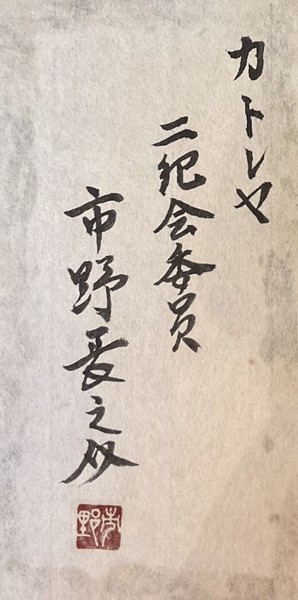 カトレヤ
二紀会委員
市野長之介
市野